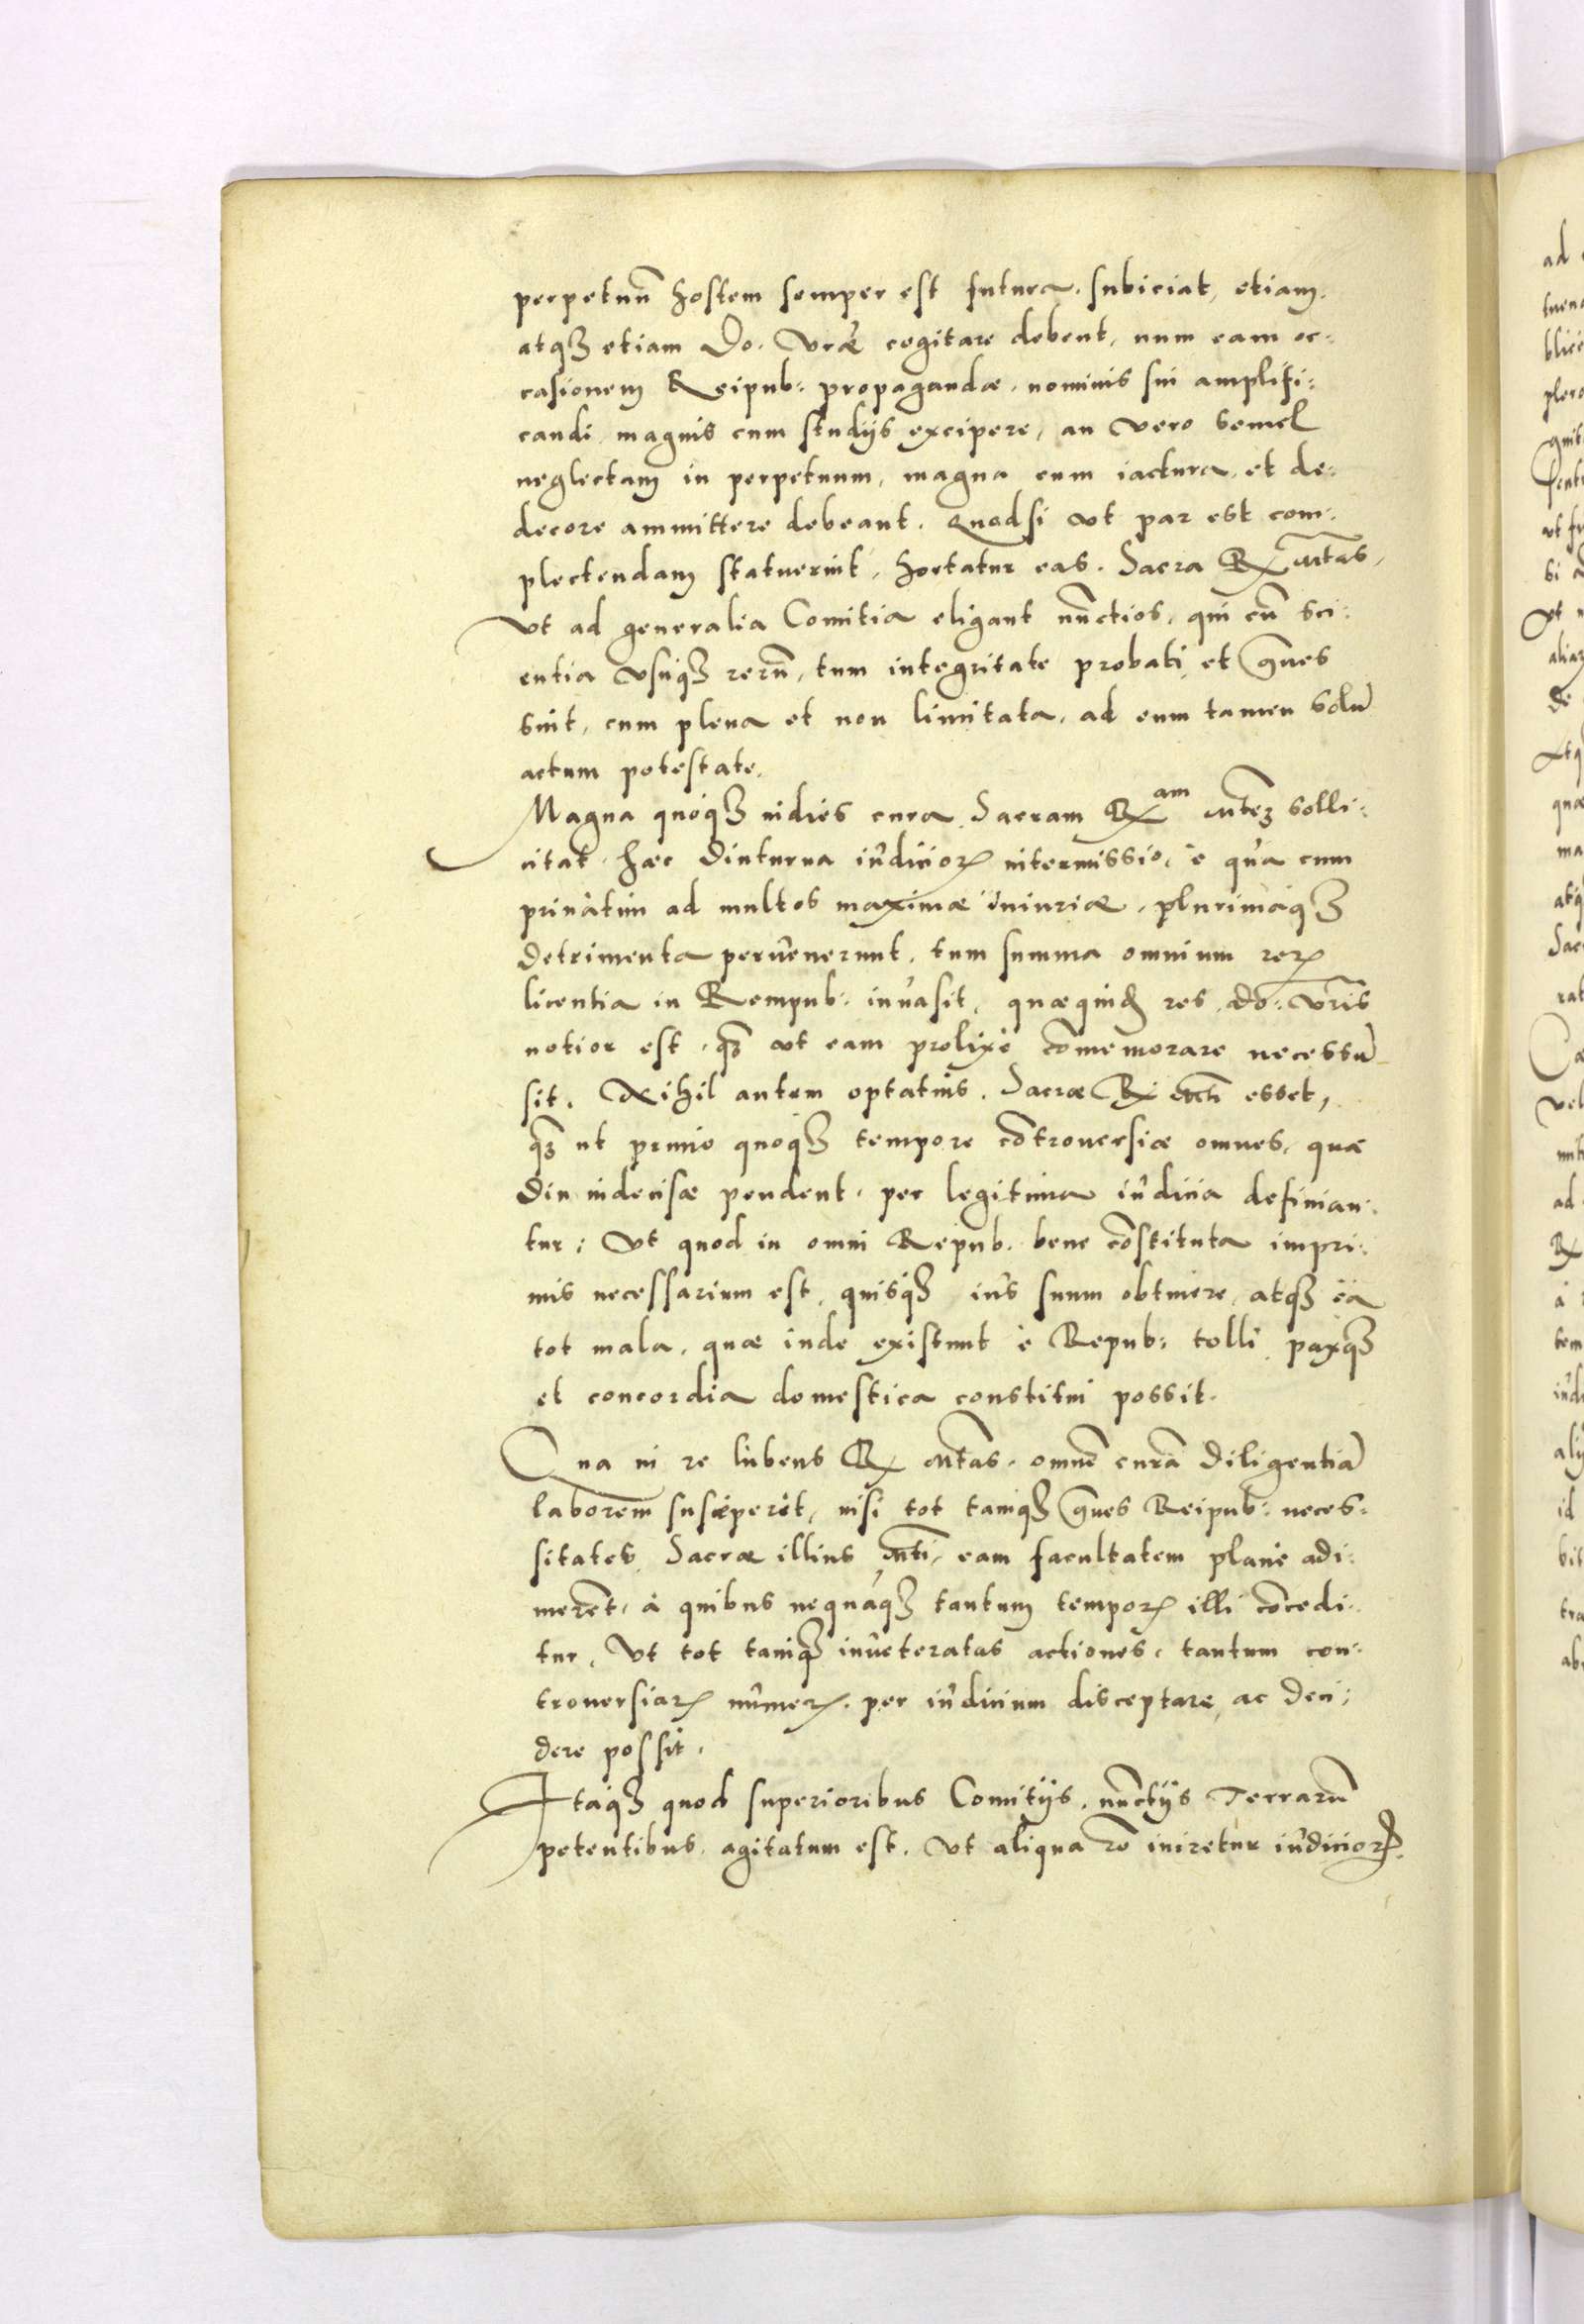 perpetuū hostem semper est futura. subiciat, etiam.
atq₃ etiam Do. Vr̄æ cogitare debent, num eam oc:
casionem Reipub: propagandæ, nominis sui amplifi:
candi, magnis cum studijs excipere, an vero semel
neglectam in perpetuum, magna cum iactura, et de:
decore ammittere debeant. Quodsi vt par est com:
plectendam statuerint, hortatur eas. Sacra Rx Mt̄as,
Vt ad generalia Comitia eligant nūctios, qui cū sci:
entia vsuq₃ rerū, tum integritate probati, et gr̄ues
sint, cum plena et non limitata, ad eum tamen solū
actum potestate.
Magna quoq₃ indies cura Sacram Rx am Mt̄em solli:
citat, hæc diuturna iudicioꝝ intermissio, è qua cum
priuatim ad multos maximæ iniuriæ, plurimaq₃
detrimenta peruenerunt, tum summa omnium reꝝ
licentia in Rempub: inuasit, quæquid̄ res do: vr̄is
notior est, q̄₃ vt eam prolixè cōmemorare necessū
sit. Nihil autem optatius. Sacræ Rx Mt̄i esset,
q̄₃ ut primo quoq₃ tempore cōtrouersiæ omnes, quæ
diu indecisæ pendent, per legitima iudicia definian:
tur: Vt quod in omni Repub. bene cōstituta impri:
mis necessarium est, quisq₃ ius suum obtinere, atq₃ ea
tot mala, quæ inde existunt è Repub: tolli paxq₃
et concordia domestica constitui possit.
Qua in re lubens Rx Mt̄as, omnē curā diligentiā
laborem susciperet, nisi tot tamq₃ gr̄ues Reipub: neces:
sitates, Sacræ illius Mt̄i, eam facultatem planè adi:
merēt, à quibus nequaq₃ tantum tempoꝝ illi cōcedi:
tur, Vt tot tamq₃ inueteratas actiones, tantum con:
trouersiaꝝ numeꝝ, per iudicium disceptare, ac deci:
dere possit.
Itaq₃ quod superioribus Comitijs, nūctijs Terrarū
petentibus, agitatum est, Vt aliqua rō iniretur iudicioꝝ.